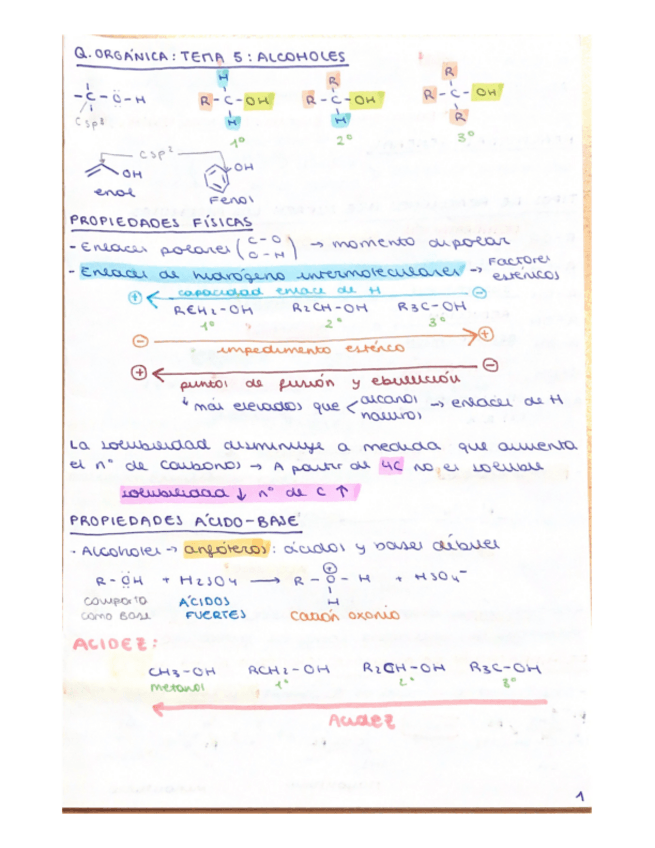 Q. ORGÁNICA: TEMA 5: ALCOHOLES
H R R
-C-O-H R-C-OH R-C-OH R-C-OH
Csp3 H H R
1º 2º 3º
Csp2
OH OH
enol Fenol
PROPIEDADES FÍSICAS
- Enlaces polares (C-O O-H) → momento dipolar
- Enlaces de hidrógeno intermoleculares → Factores estéricos
+ capacidad enlace de H -
RCH2-OH R2CH-OH R3C-OH
1º 2º 3º
- impedimento estérico +
+ puntos de fusión y ebullición -
más elevados que < alcanos → enlaces de H
La solubilidad disminuye a medida que aumenta
el nº de carbonos → A partir de 4C no es soluble
solubilidad ↓ nº de C ↑
PROPIEDADES ÁCIDO-BASE
- Alcoholes → anfóteros: ácidos y bases débiles
R-OH + H2SO4 → R-O-H + HSO4-
+
H
comporta ÁCIDOS
como base FUERTES catión oxonio
ACIDEZ:
CH3-OH RCH2-OH R2CH-OH R3C-OH
metanol 1º 2º 3º
Acidez
1